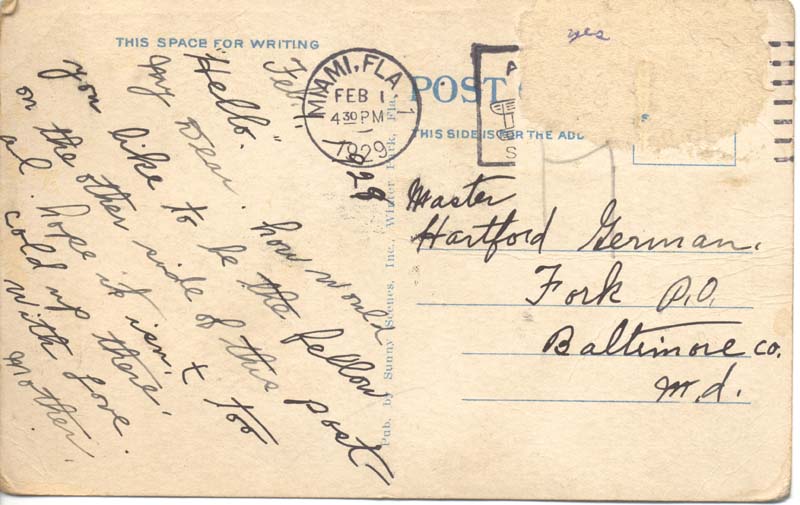 THIS SPACE FOR WRITING
Feb. 1 1929
"Hello."
My Dear. how would
you like to be the fellow
on the other side of this post
al. hope it isn't too
cold up there.
with Love.
Mother.
MIAMI, FLA.
FEB 1
4 30 PM
1929
POST
THIS SIDE IS FOR THE ADD
yes
Pub. by Sunny Scenes, Inc., Winter Park, Fla.
Master
Hartford German.
Fork P.O.
Baltimore co.
Md.